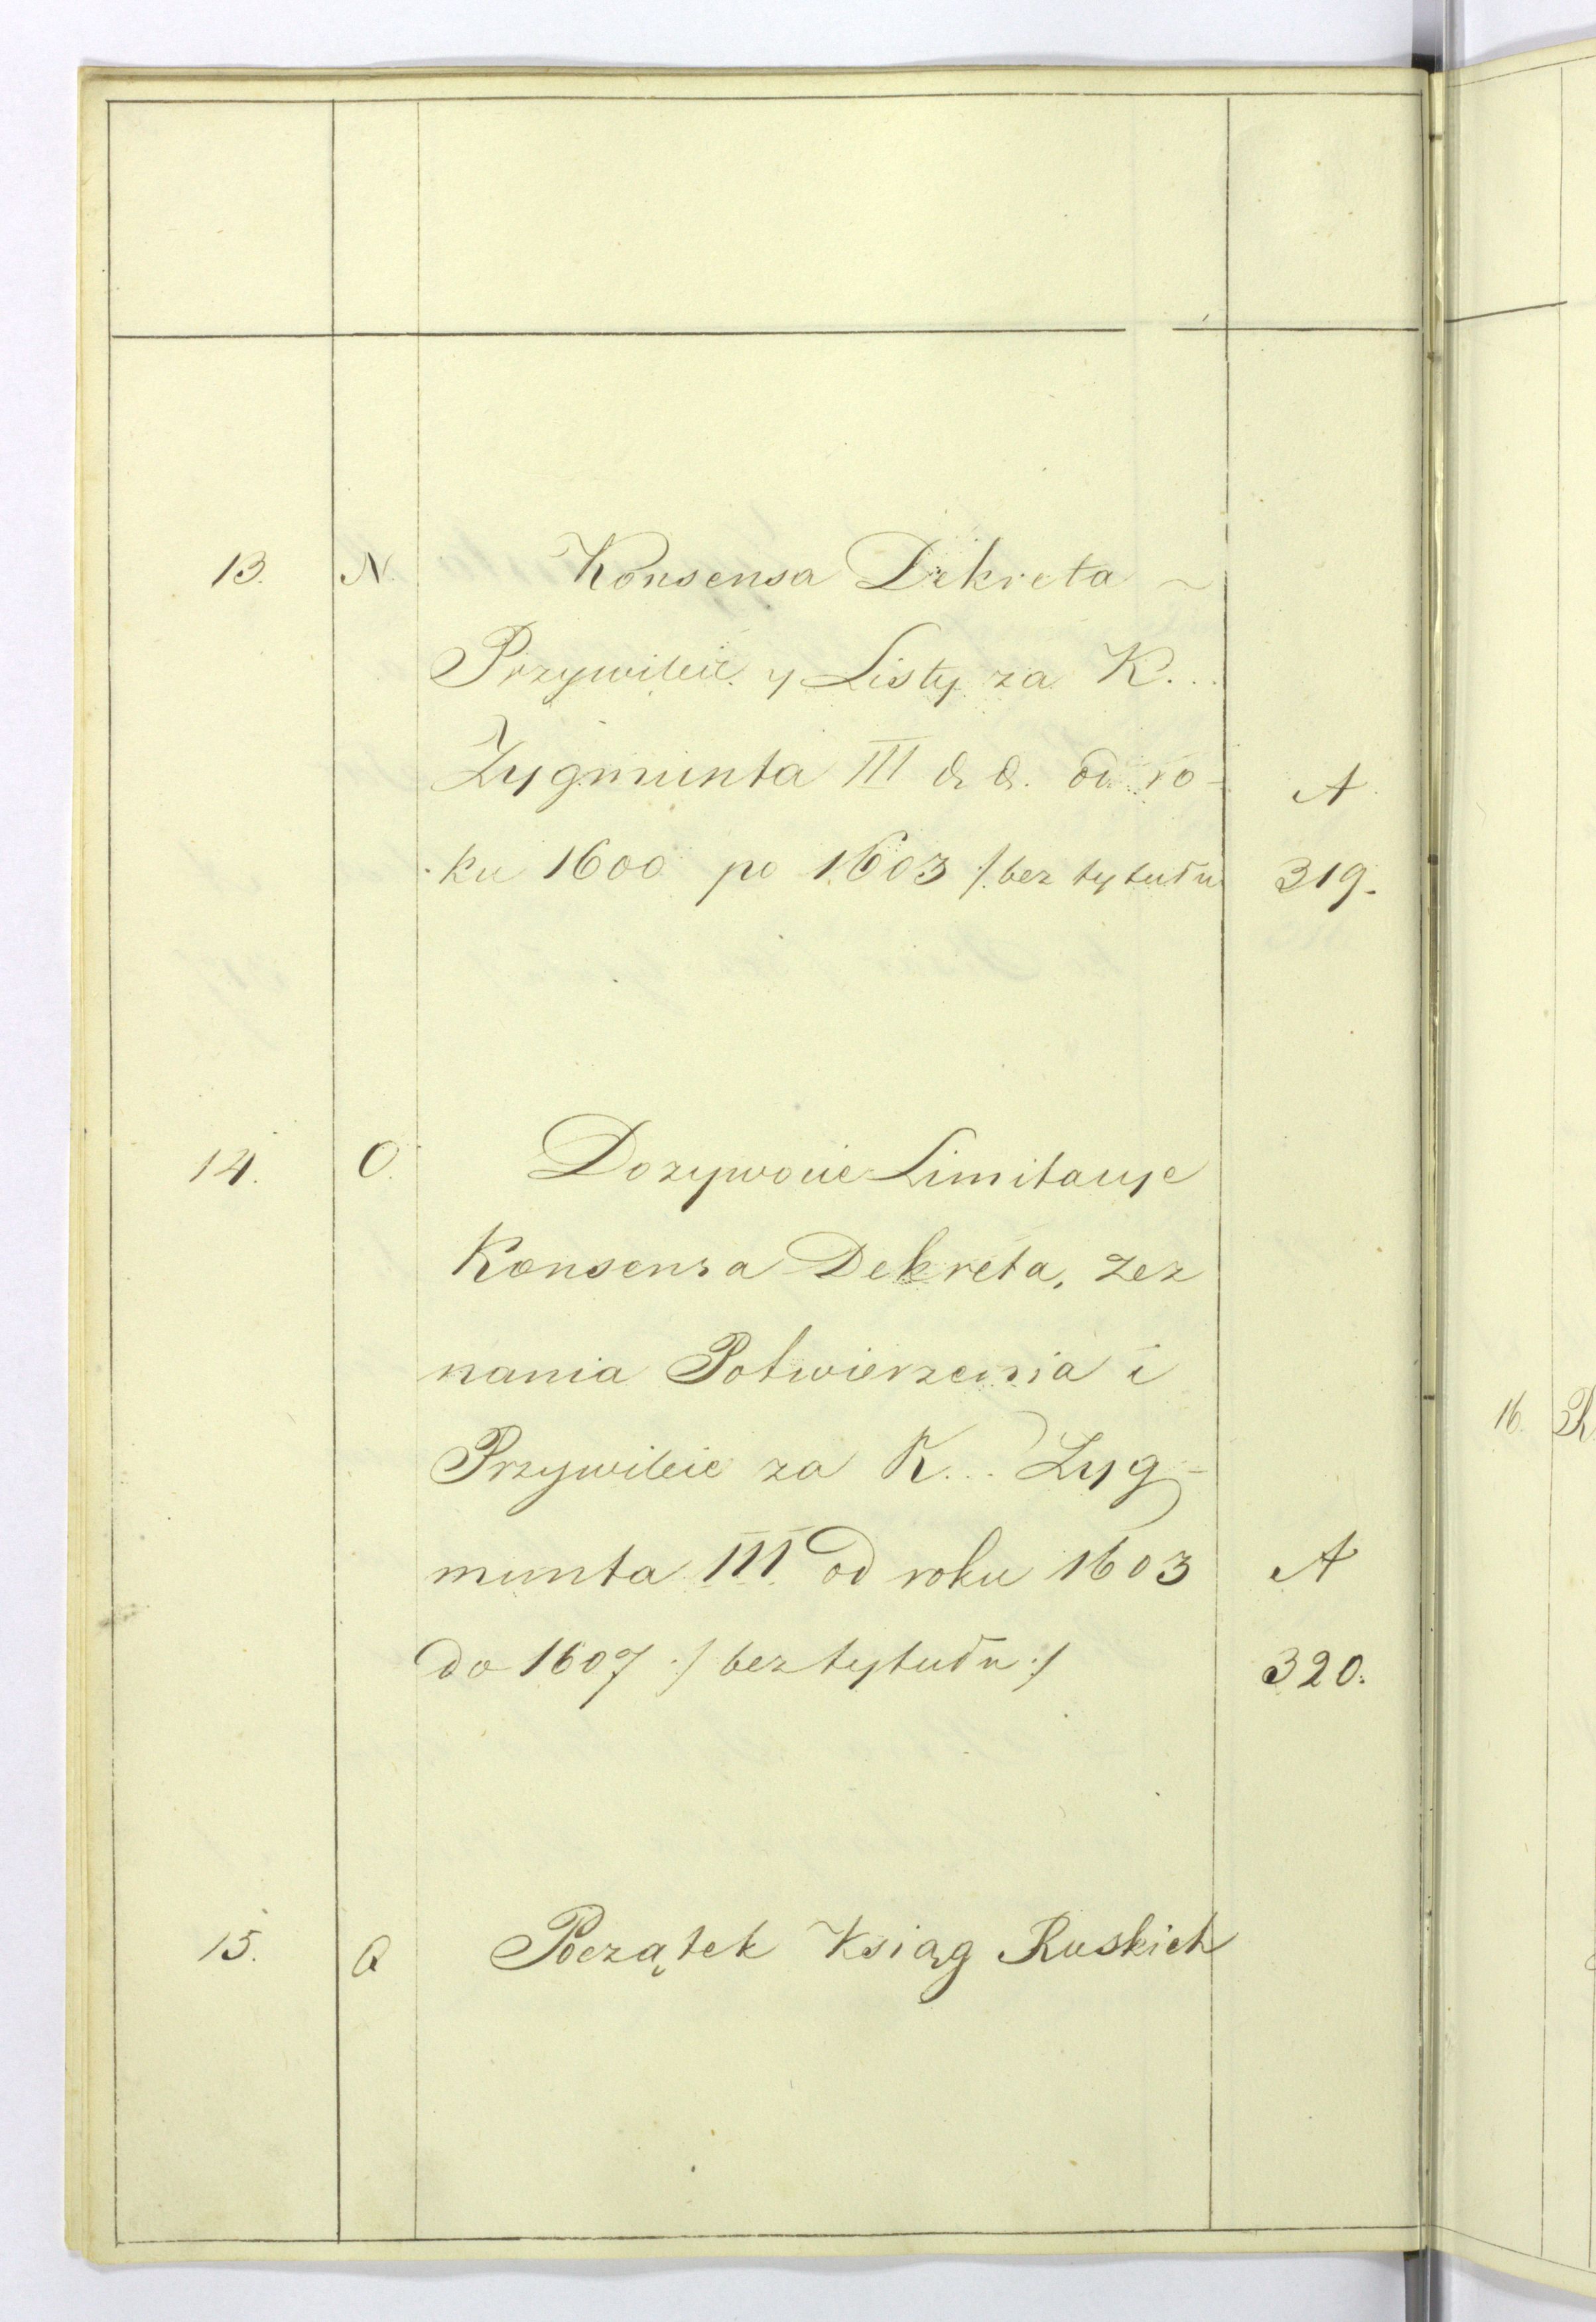 13. N. Konsensa Dekreta ~
Przywileie y Listy za K...
Zygmunta III d. d. od ro- A
ku 1600 po 1603 /: bez tytułu 319.
14. O. Dozywocie Limitacye
Konsensa Dekreta, Zez
nania Potwierzenia i
Przywileie za K... Zyg-
munta III od roku 1603 A
do 1607 :/ bez tytułu :/ 320.
15. Q Początek Ksiąg Ruskich
16. R